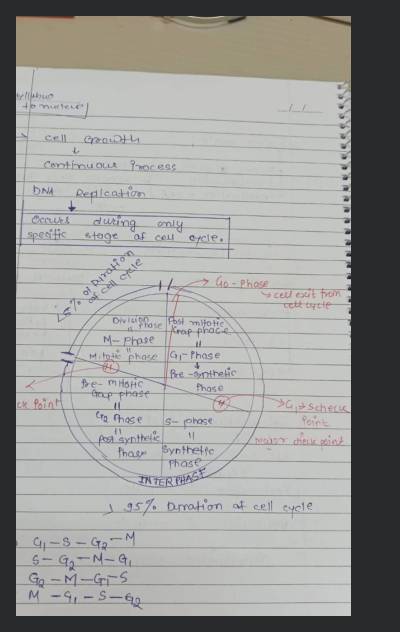 to nucleus
__/__/__
Cell Growth
↓
Continuous Process
DNA Replication
↓
Occurs during only
specific stage of cell cycle.
<5% of Duration
of cell cycle
G0-Phase
↳ cell exit from
cell cycle
Division Phase
"
M-Phase
"
Mitotic phase
Post mitotic
Gap phase
"
G1-Phase
↓
Pre-synthetic
Phase
Pre-mitotic
Gap phase
"
G2 Phase
"
Post synthetic
Phase
S-phase
"
Synthetic
Phase
ck Point
G1→S check
Point
major check point
INTERPHASE
↳ 95% Duration of cell cycle
G1-S-G2-M
S-G2-M-G1
G2-M-G1-S
M-G1-S-G2